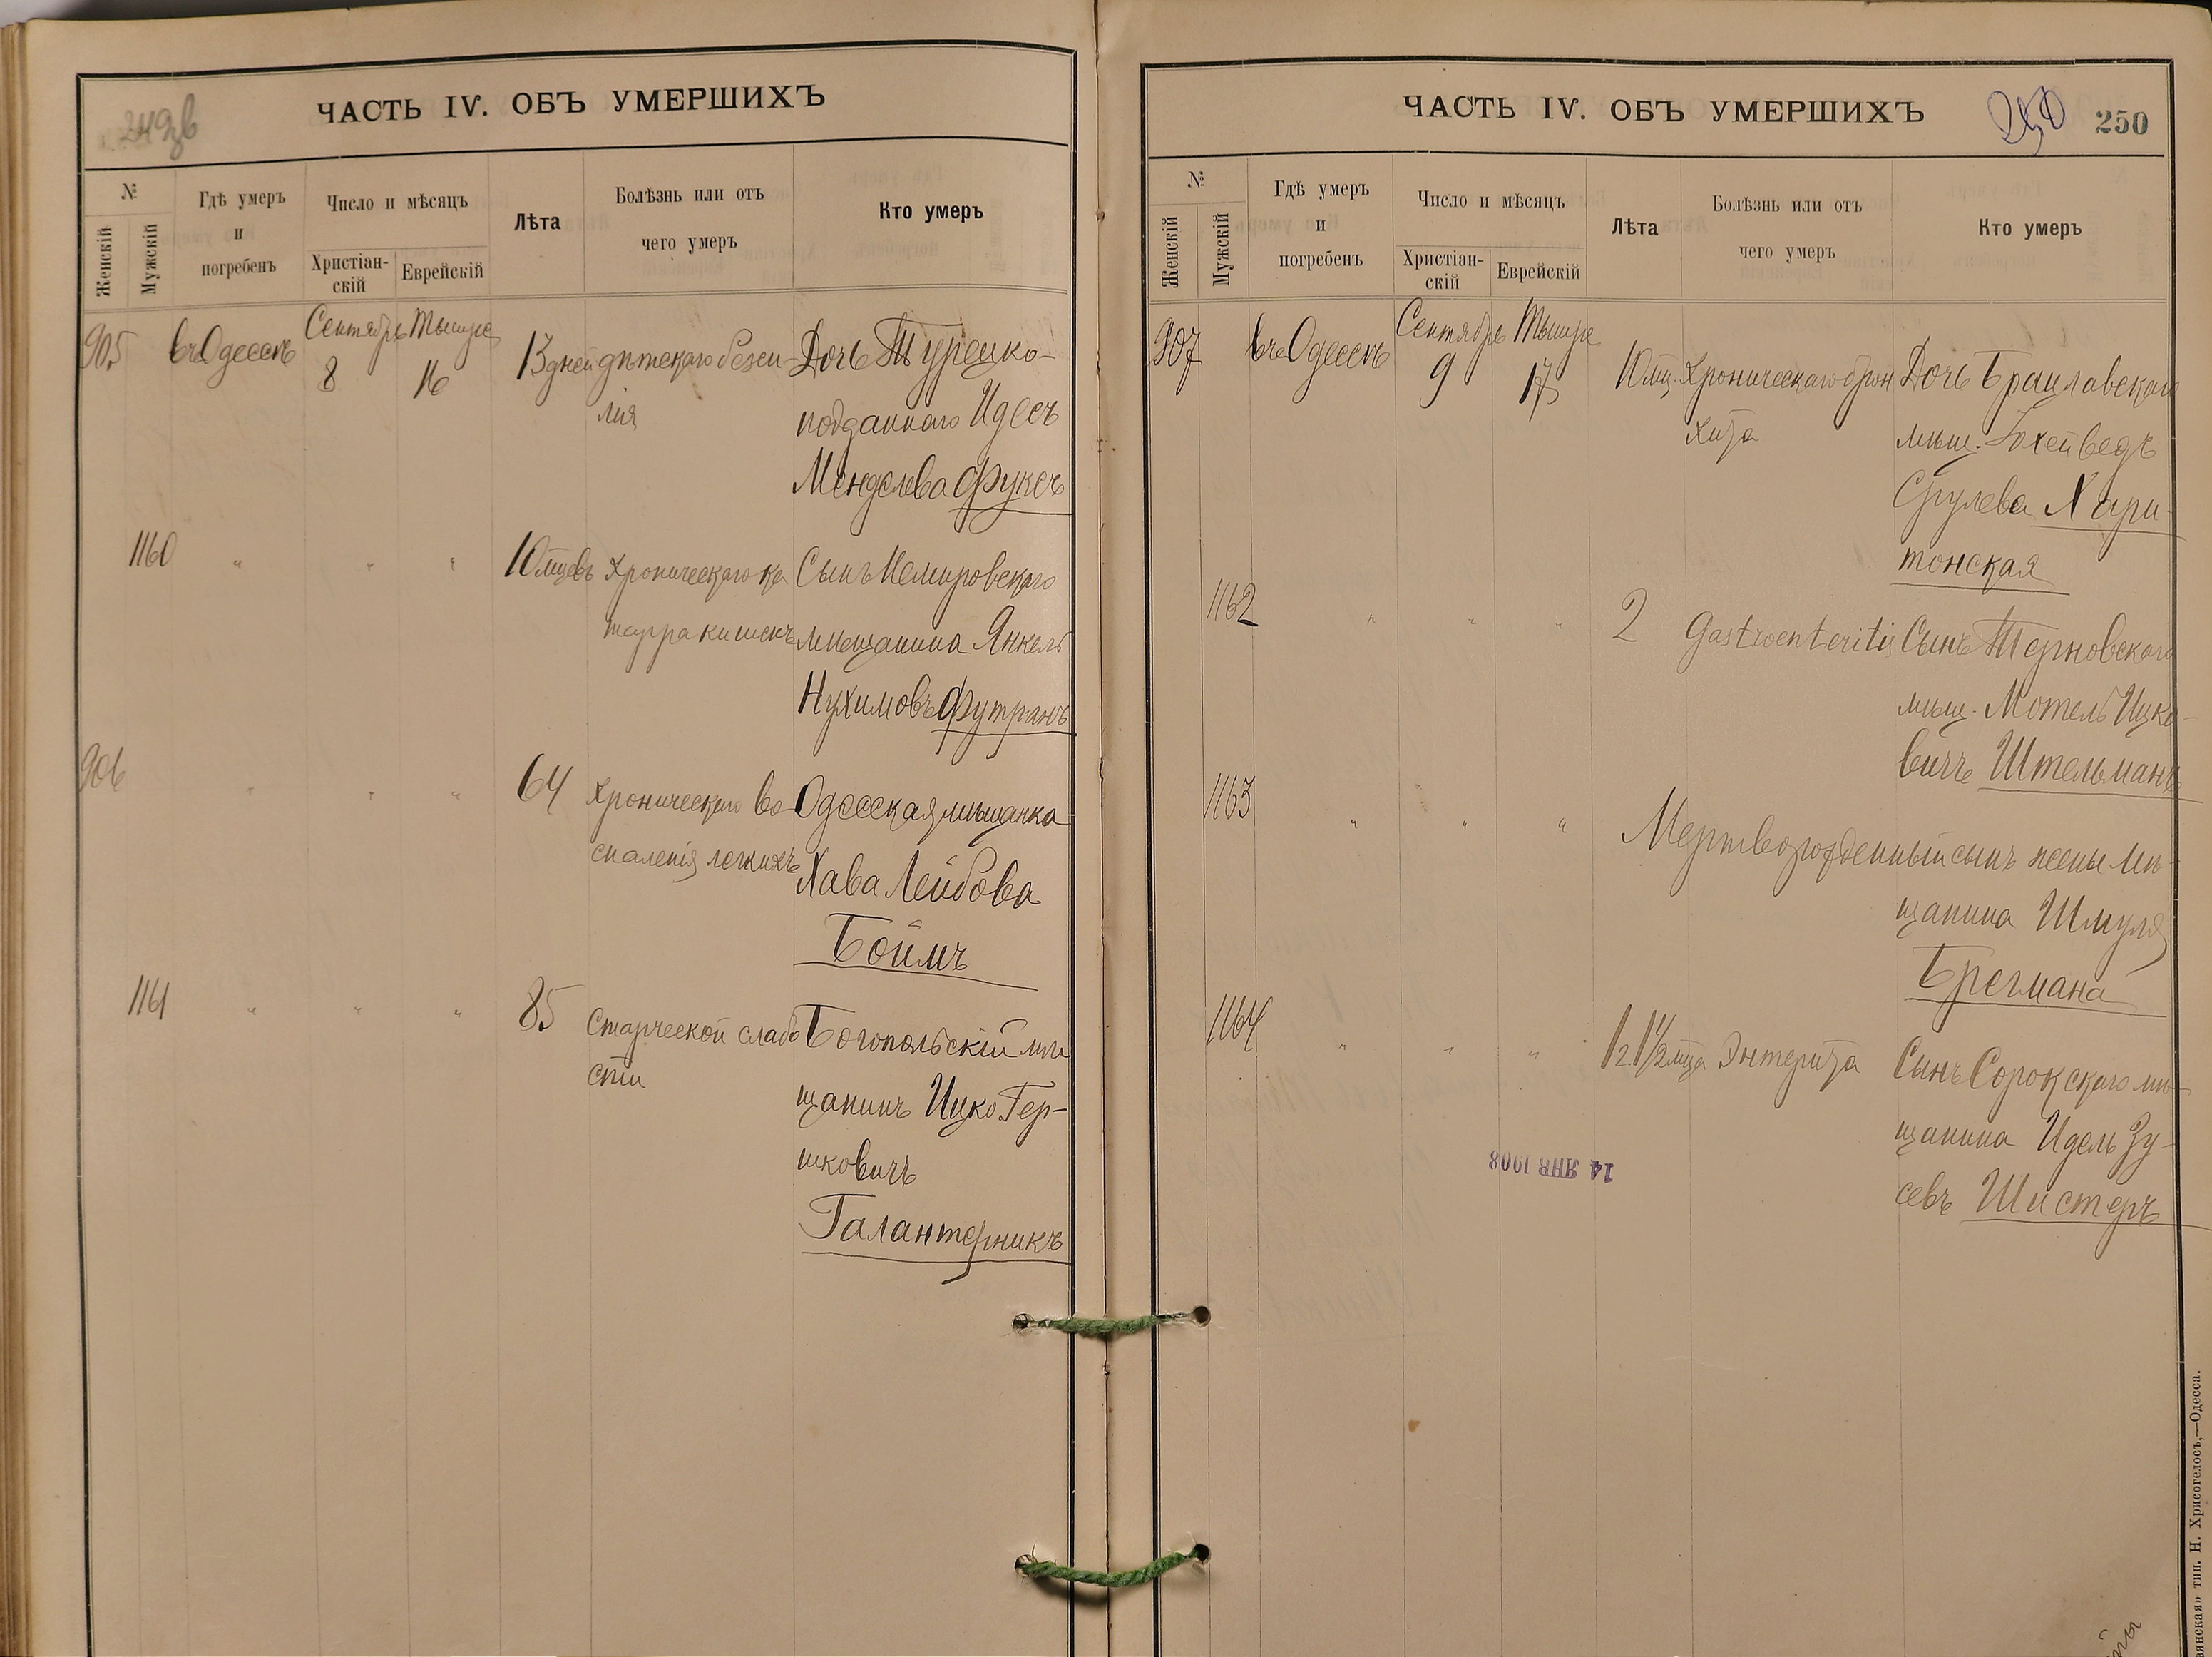 249 об
ЧАСТЬ IV. ОБЪ УМЕРШИХЪ
№
Женскій
Мужскій
Гдѣ умеръ
и
погребенъ
Число и мѣсяцъ
Христіан-
скій
Еврейскій
Лѣта
Болѣзнь или отъ
чего умеръ
Кто умеръ
905 въ Одессѣ Сентябрь 8 Тышре 16 13 дней дѣтскаго безси-
лія
Дочь Турецко-
подданнаго Идесъ
Менделева Фуксъ
1160 " " " 10 мцевъ Хроническаго ка
тарра кишекъ
Сынъ Немировскаго
мѣщанина Янкель
Нухимовъ Футранъ
906 " " " 64 Хроническаго во-
спаленія легкихъ
Одесская мѣщанка
Хава Лейбова
Боймъ
1161 " " " 85 Старческой слабо
сти
Богопольскій мѣ
щанинъ Ицко Гер-
шковичъ
Галантерникъ
ЧАСТЬ IV. ОБЪ УМЕРШИХЪ
250
250
№
Женскій
Мужскій
Гдѣ умеръ
и
погребенъ
Число и мѣсяцъ
Христіан-
скій
Еврейскій
Лѣта
Болѣзнь или отъ
чего умеръ
Кто умеръ
907 въ Одессѣ Сентябрь 9 Тышре 17 10 мц. Хроническаго брон
хита
Дочь Браилавскаго
мѣщ. Іохейведъ
Срулева Хари-
тонская
1162 " " " 2 Gastroenteritis
Сынъ Терновскаго
мѣщ. Мотель Ицко-
вичъ Штельманъ
1163 " " " Мертворожденный сынъ жены мѣ-
щанина Шмуля
Брегмана
1164 " " " 1 г. 1 1/2 мца Энтерита
Сынъ Сорокскаго мѣ-
щанина Идель Зу-
севъ Шистеръ
14 ЯНВ 1908
тип. Н. Хрисогелосъ,—Одесса.